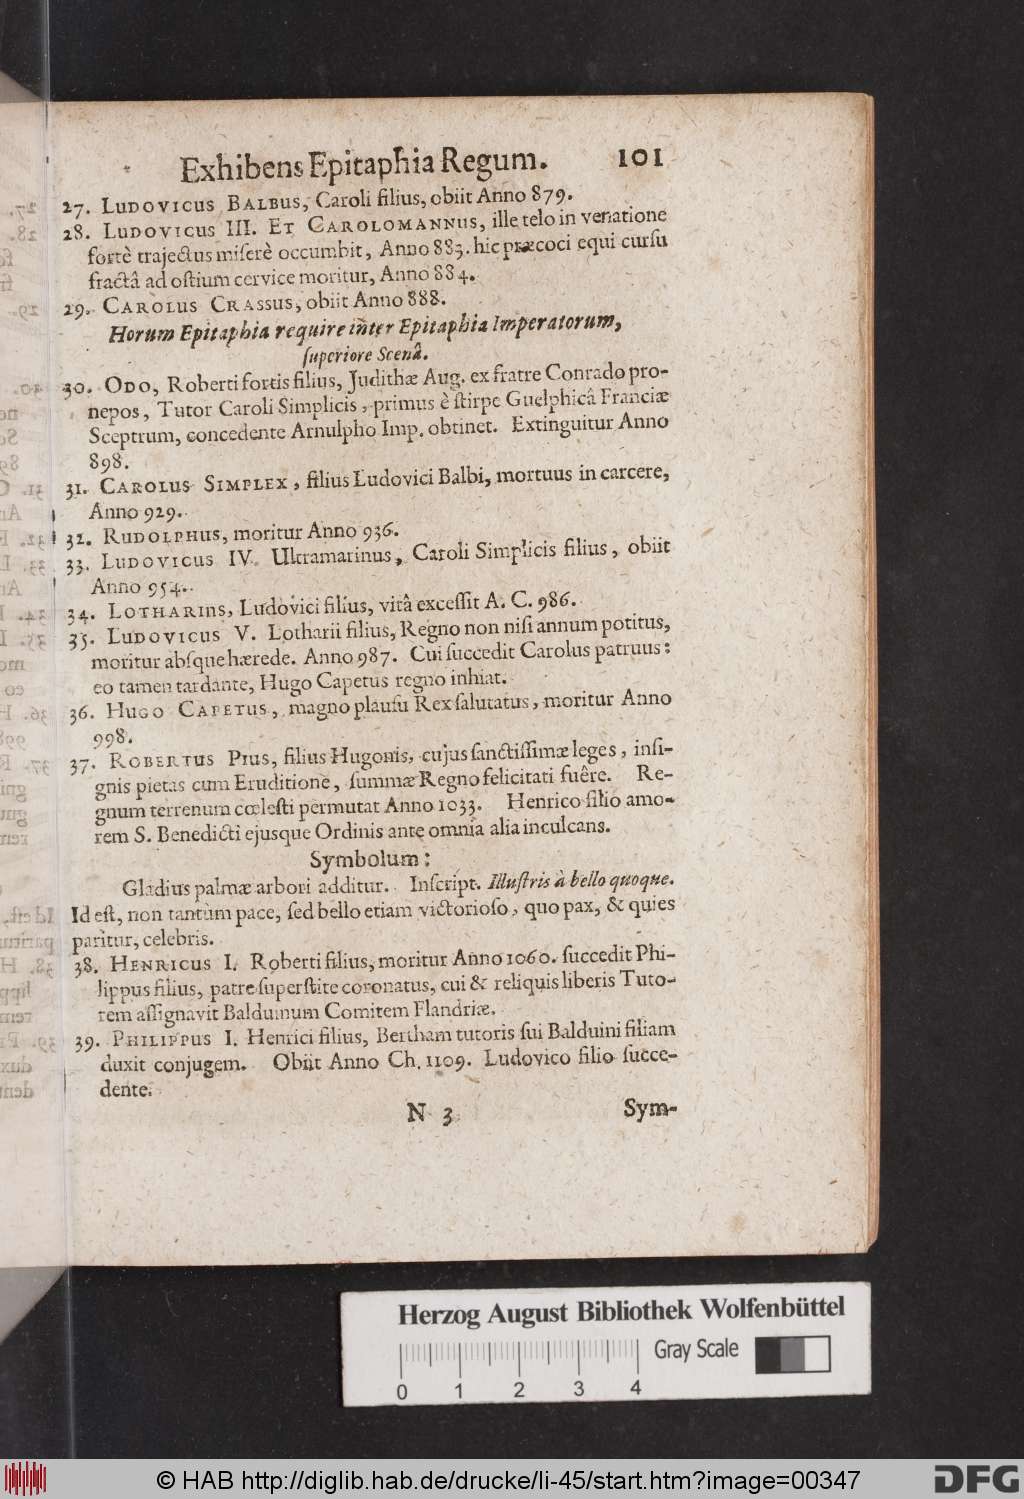 Exhibens Epitaphia Regum. 101
27. LUDOVICUS BALBUS, Caroli filius, obiit Anno 879.
28. LUDOVICUS III. ET CAROLOMANNUS, ille telo in venatione
fortè trajectus miſerè occumbit, Anno 883. hic præcoci equi curſu
fractâ ad oſtium cervice moritur, Anno 884.
29. CAROLUS CRASSUS, obiit Anno 888.
Horum Epitaphia require inter Epitaphia Imperatorum,
ſuperiore Scenâ.
30. ODO, Roberti fortis filius, Judithæ Aug. ex fratre Conrado pro-
nepos, Tutor Caroli Simplicis, primus è ſtirpe Guelphicâ Franciæ
Sceptrum, concedente Arnulpho Imp. obtinet. Extinguitur Anno
898.
31. CAROLUS SIMPLEX, filius Ludovici Balbi, mortuus in carcere,
Anno 929.
32. RUDOLPHUS, moritur Anno 936.
33. LUDOVICUS IV. Ultramarinus, Caroli Simplicis filius, obiit
Anno 954.
34. LOTHARIUS, Ludovici filius, vitâ exceſſit A. C. 986.
35. LUDOVICUS V. Lotharii filius, Regno non niſi annum potitus,
moritur absque hærede. Anno 987. Cui ſuccedit Carolus patruus:
eo tamen tardante, Hugo Capetus regno inhiat.
36. HUGO CAPETUS, magno plauſu Rex ſalutatus, moritur Anno
998.
37. ROBERTUS PIUS, filius Hugonis, cujus ſanctiſſimæ leges, inſi-
gnis pietas cum Eruditione, ſummæ Regno felicitati fuêre. Re-
gnum terrenum cœleſti permutat Anno 1033. Henrico filio amo-
rem S. Benedicti ejusque Ordinis ante omnia alia inculcans.
Symbolum:
Gladius palmæ arbori additur. Inſcript. Illuſtris à bello quoque.
Id eſt, non tantùm pace, ſed bello etiam victorioſo, quo pax, & quies
paritur, celebris.
38. HENRICUS I. Roberti filius, moritur Anno 1060. ſuccedit Phi-
lippus filius, patre ſuperſtite coronatus, cui & reliquis liberis Tuto-
rem aſſignavit Balduinum Comitem Flandriæ.
39. PHILIPPUS I. Henrici filius, Bertham tutoris ſui Balduini filiam
duxit conjugem. Obiit Anno Ch. 1109. Ludovico filio ſucce-
dente.
N 3 Sym-
Herzog August Bibliothek Wolfenbüttel
Gray Scale
0 1 2 3 4
© HAB http://diglib.hab.de/drucke/li-45/start.htm?image=00347
DFG